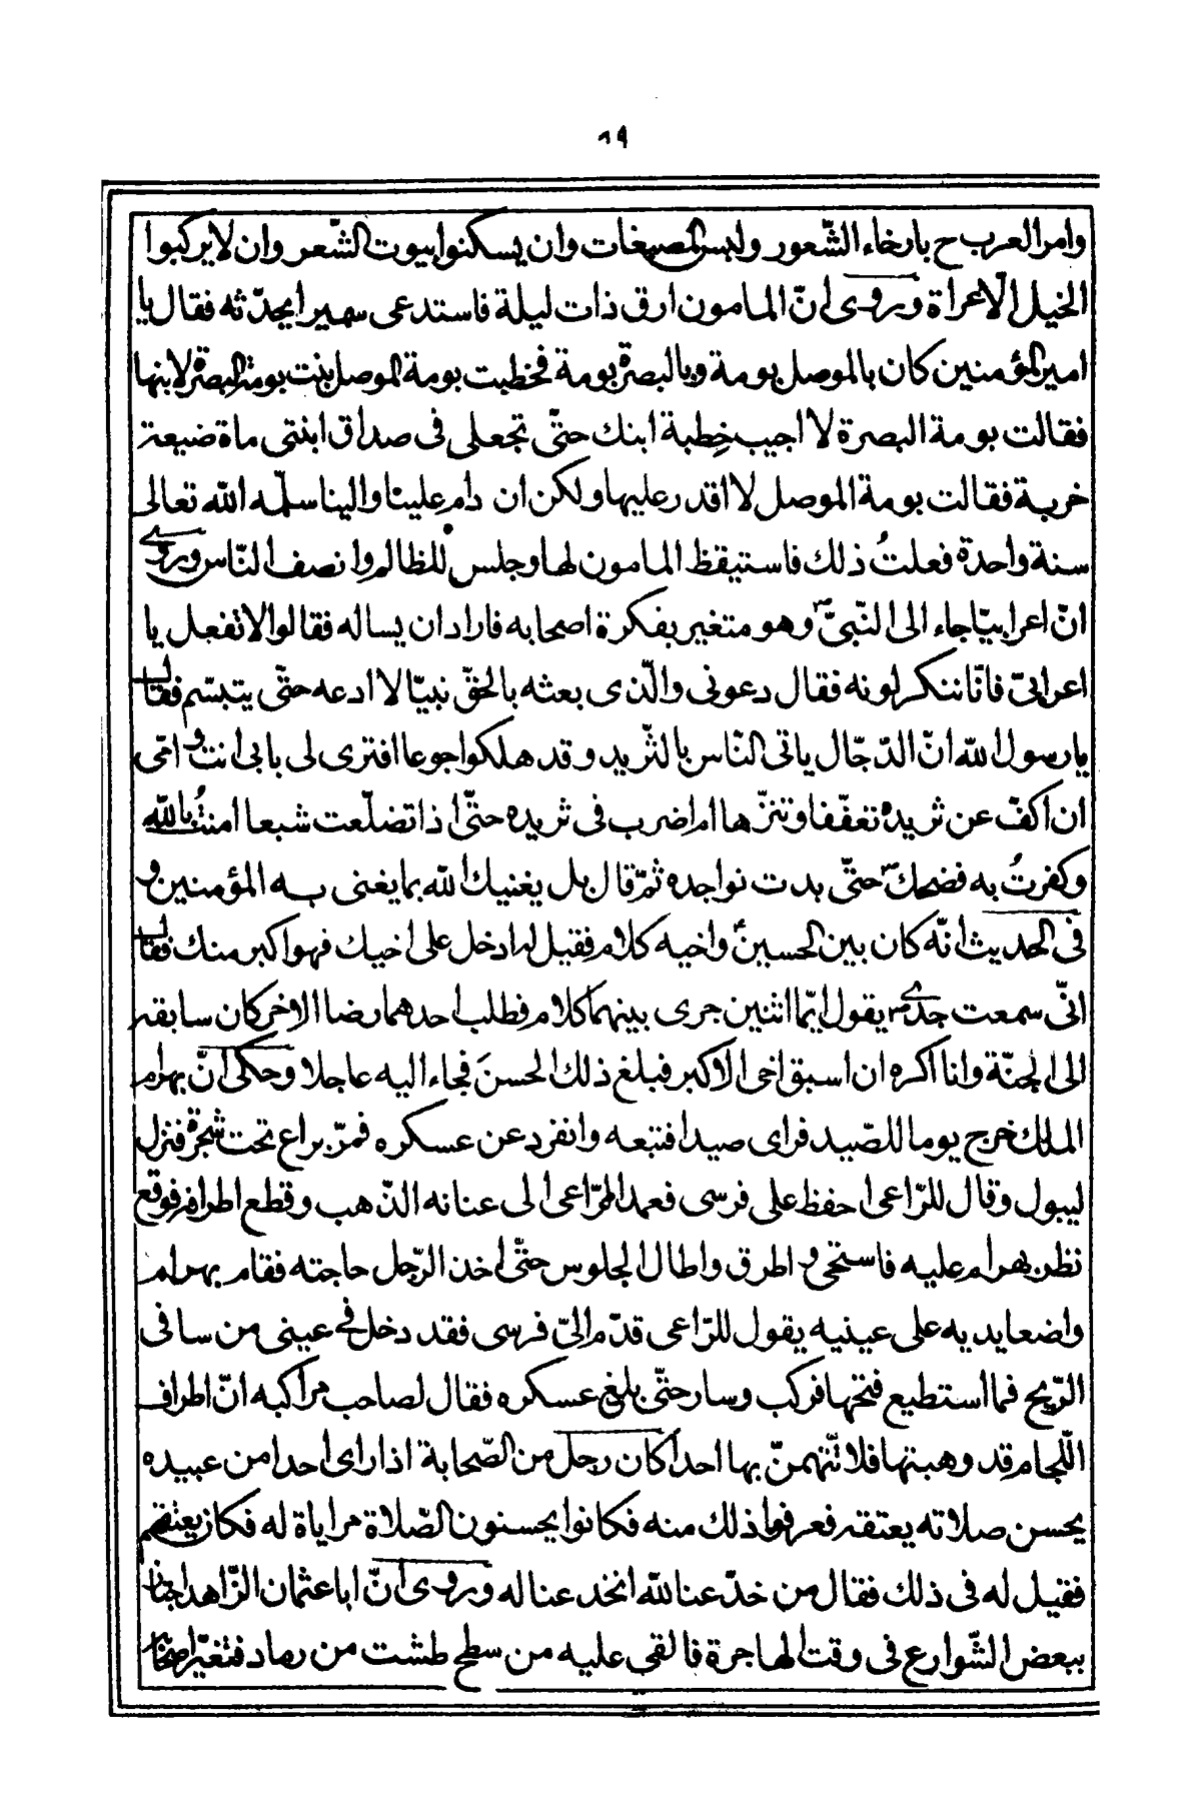 ٨٩
وامر العرب ح بارخاء الشّعور ولبس المصبغات وان يسكنوا بيوت الشّعر وان لا يركبوا
الخيل الّا عراة وروى انّ المامون ارق ذات ليلة فاستدعى سميرا يحدّثه فقال يا
امير المؤمنين كان بالموصل بومة وبالبصرة بومة فخطبت بومة الموصل بنت بومة البصرة لابنها
فقالت بومة البصرة لا اجيب خِطبة ابنك حتّى تجعلى فى صداق ابنتى ماة ضيعة
خربة فقالت بومة الموصل لا اقدر عليها ولكن ان دام علينا والينا سلّمه الله تعالى
سنة واحدة فعلتُ ذلك فاستيقظ المامون لها وجلس للظالم وانصف النّاس وروى
انّ اعرابيّا جاء الى النّبىّ ص وهو متغير بفكرة اصحابه فاراد ان يساله فقالوا لا تفعل يا
اعرابىّ فانّا ننكر لونه فقال دعونى والّذى بعثه بالحقّ نبيّا لا ادعه حتّى يتبسّم فقال
يا رسول الله انّ الدّجّال ياتى النّاس بالثّريد وقد هلكوا جوعا افترى لى بابى انت وامّى
ان اكفّ عن ثريده تعفّفا وتنزّها ام اضرب فى ثريده حتّى اذا تضلّعت شبعا امنتُ بالله
وكفرتُ به فضحك ص حتّى بدت نواجده ثمّ قال بل يغنيك الله بما يغنى به المؤمنين و
فى الحديث انّه كان بين الحسين ع واخيه كلام فقيل له ادخل على اخيك فهو اكبر منك فقال
انّى سمعت جدّى ص يقول ايّما اثنين جرى بينهما كلام فطلب احدهما رضا الاخر كان سابقه
الى الجنّة وانا اكره ان اسبق اخى الاكبر فبلغ ذلك الحسن فجاء اليه عاجلا وحكى انّ بهرام
الملك خرج يوما للصّيد فراى صيدا فتبعه وانفرد عن عسكره فمرّ براع تحت شجرة فنزل
ليبول وقال للرّاعى احفظ على فرسى فعمد الرّاعى الى عنانه الذّهب وقطع اطرافه فوقع
نظر بهرام عليه فاستحى واطرق واطال الجلوس حتّى اخذ الرّجل حاجته فقام بهرام
واضعا يديه على عينيه يقول للرّاعى قدّم الىّ فرسى فقد دخل فى عينى من سافى
الرّيح فما استطيع فتحها فركب وسار حتّى بلغ عسكره فقال لصاحب مراكبه انّ اطراف
اللّجام قد وهبتها فلا تتّهمنّ بها احدا كان رجل من الصّحابة اذا راى احدا من عبيده
يحسن صلاته يعتقه فعرفوا ذلك منه فكانوا يحسنون الصّلاة مراياة له فكان يعتقهم
فقيل له فى ذلك فقال من خدّعنا لله انخدعنا له وروى انّ ابا عثمان الزّاهد اجتاز
ببعض الشّوارع فى وقت الهاجرة فالقى عليه من سطح طشت من رماد فتغيّر اصحابه